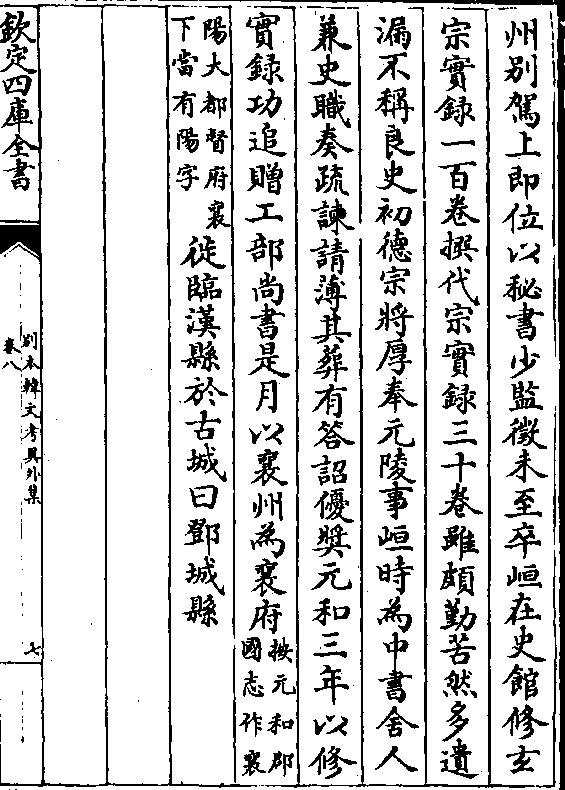 州别駕上即位以秘書少監徵未至卒峘在史館修玄
宗實録一百卷撰代宗實録三十卷雖頗勤苦然多遺
漏不稱良史初德宗將厚奉元陵事峘時為中書舍人
兼史職奏疏諫請薄其葬有答詔優奬元和三年以修
實録功追贈工部尚書是月以襄州為襄府按元和郡國志作襄
陽大都督府襄下當有陽字徙臨漢縣於古城曰鄧城縣
欽定四庫全書
别本韓文考異外集
卷八
七